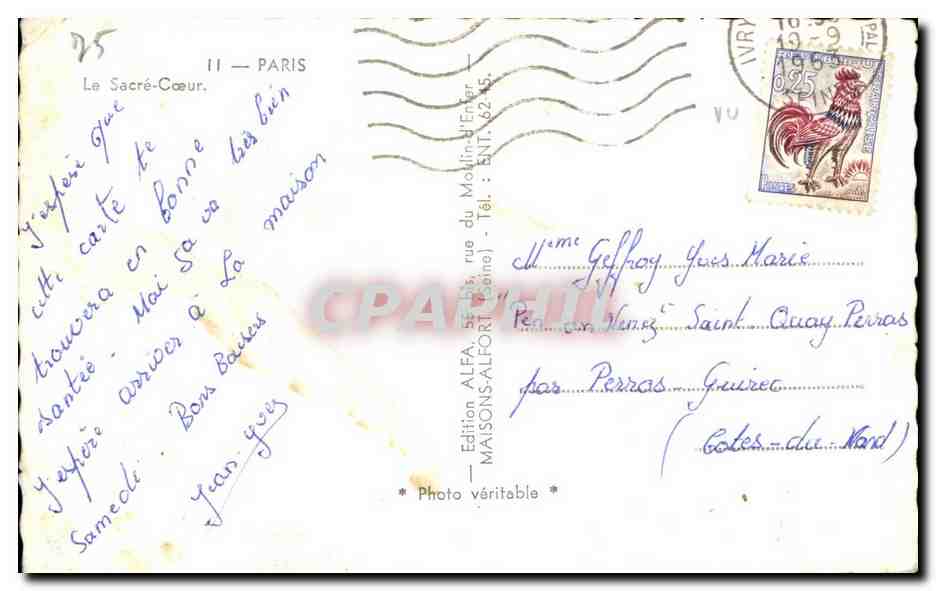 25
11 — PARIS
Le Sacré-Cœur.
J'espère que
cette carte te
trouvera en bonne
santée. Moi Sa va très bien
J'espère arriver à La maison
Samedi. Bons Baisers
Jean-Yves
— Edition ALFA, 5E bis, rue du Moulin-d'Enfer —
MAISONS-ALFORT (Seine) - Tél. : ENT. 62-15.
* Photo véritable *
IVRY
PAL
10-9
196
0,25
VU
Mme Geffroy Yves Marie
"Pen an Nenez" Saint Quay Perros
par Perros-Guirec
(Cotes-du-Nord)
CPAPHIL